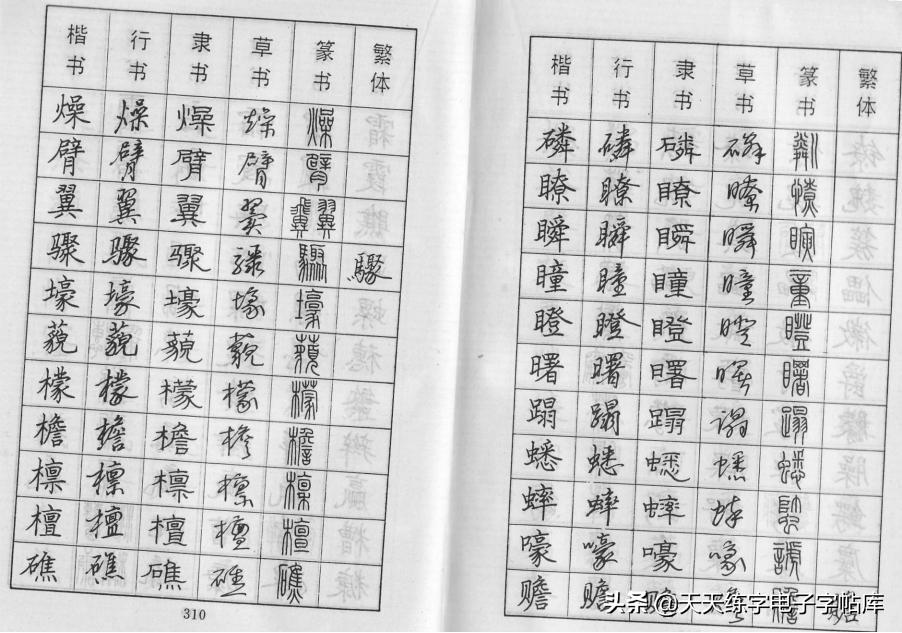 楷书 行书 隶书 草书 篆书 繁体
燥 燥 燥 燥 燥
臂 臂 臂 臂 臂
翼 翼 翼 翼 翼
骤 骤 骤 骤 驟 驟
壕 壕 壕 壕 壕
藐 藐 藐 藐 藐
檬 檬 檬 檬 檬
檐 檐 檐 檐 檐
檩 檩 檩 檩 檩
檀 檀 檀 檀 檀
礁 礁 礁 礁 礁
310
楷书 行书 隶书 草书 篆书 繁体
磷 磷 磷 磷
瞭 瞭 瞭 瞭
瞬 瞬 瞬 瞬
瞳 瞳 瞳 瞳
瞪 瞪 瞪 瞪 瞪
曙 曙 曙 曙 曙
蹋 蹋 蹋 蹋
蟋 蟋 蟋 蟋 蟋
蟀 蟀 蟀 蟀
嚎 嚎 嚎 嚎
赡 赡 赡
头条 @天天练字电子字帖库